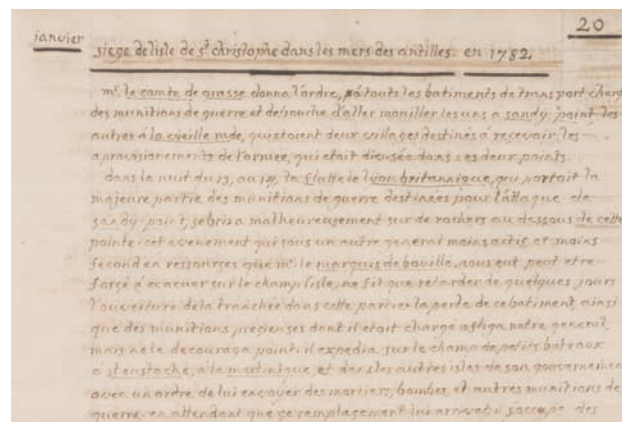 20
janvier
siege de lisle de st christophe dans les mers des antilles. en 1782
mr. le comte de grasse donna l'ordre, a touts les batiments de transport charg
des munitions de guerre et de bouche d'aller mouiller les uns a sandy-point les
autres à la vieille rade, qui etoient deux villages destinés a recevoir les
aprovisionements de l'armée, qui etait divisée dans ces deux points.
dans la nuit du 13, au 14, la flutte le lyon britannique, qui portait la
majeure partie des munitions de guerre destinées pour l'attaque de
sandy-point, se briza malheureusement sur de rochers au dessous de cette
pointe: cet evenement qui sous un autre general moins actif, et moins
fecond en ressources que mr. le marquis de bouillé, nous eut peut etre
forçé d'evacuer sur le champ l'isle, ne fit que retarder de quelques jours
l'ouverture de la tranchée dans cette partie: la perte de ce batiment, ainsi
que des munitions preçieuses dont il etait chargé afliga notre general,
mais ne le decouraga point: il expedia sur le champ de petits bateaux
a st eustache, à la martinique, et dans les autres isles de son gouverneme
avec un ordre de lui envoyer des mortiers, bombes, et autres munitions de
guerre: en attendant que ce remplacement lui arrivat il s'occupe des